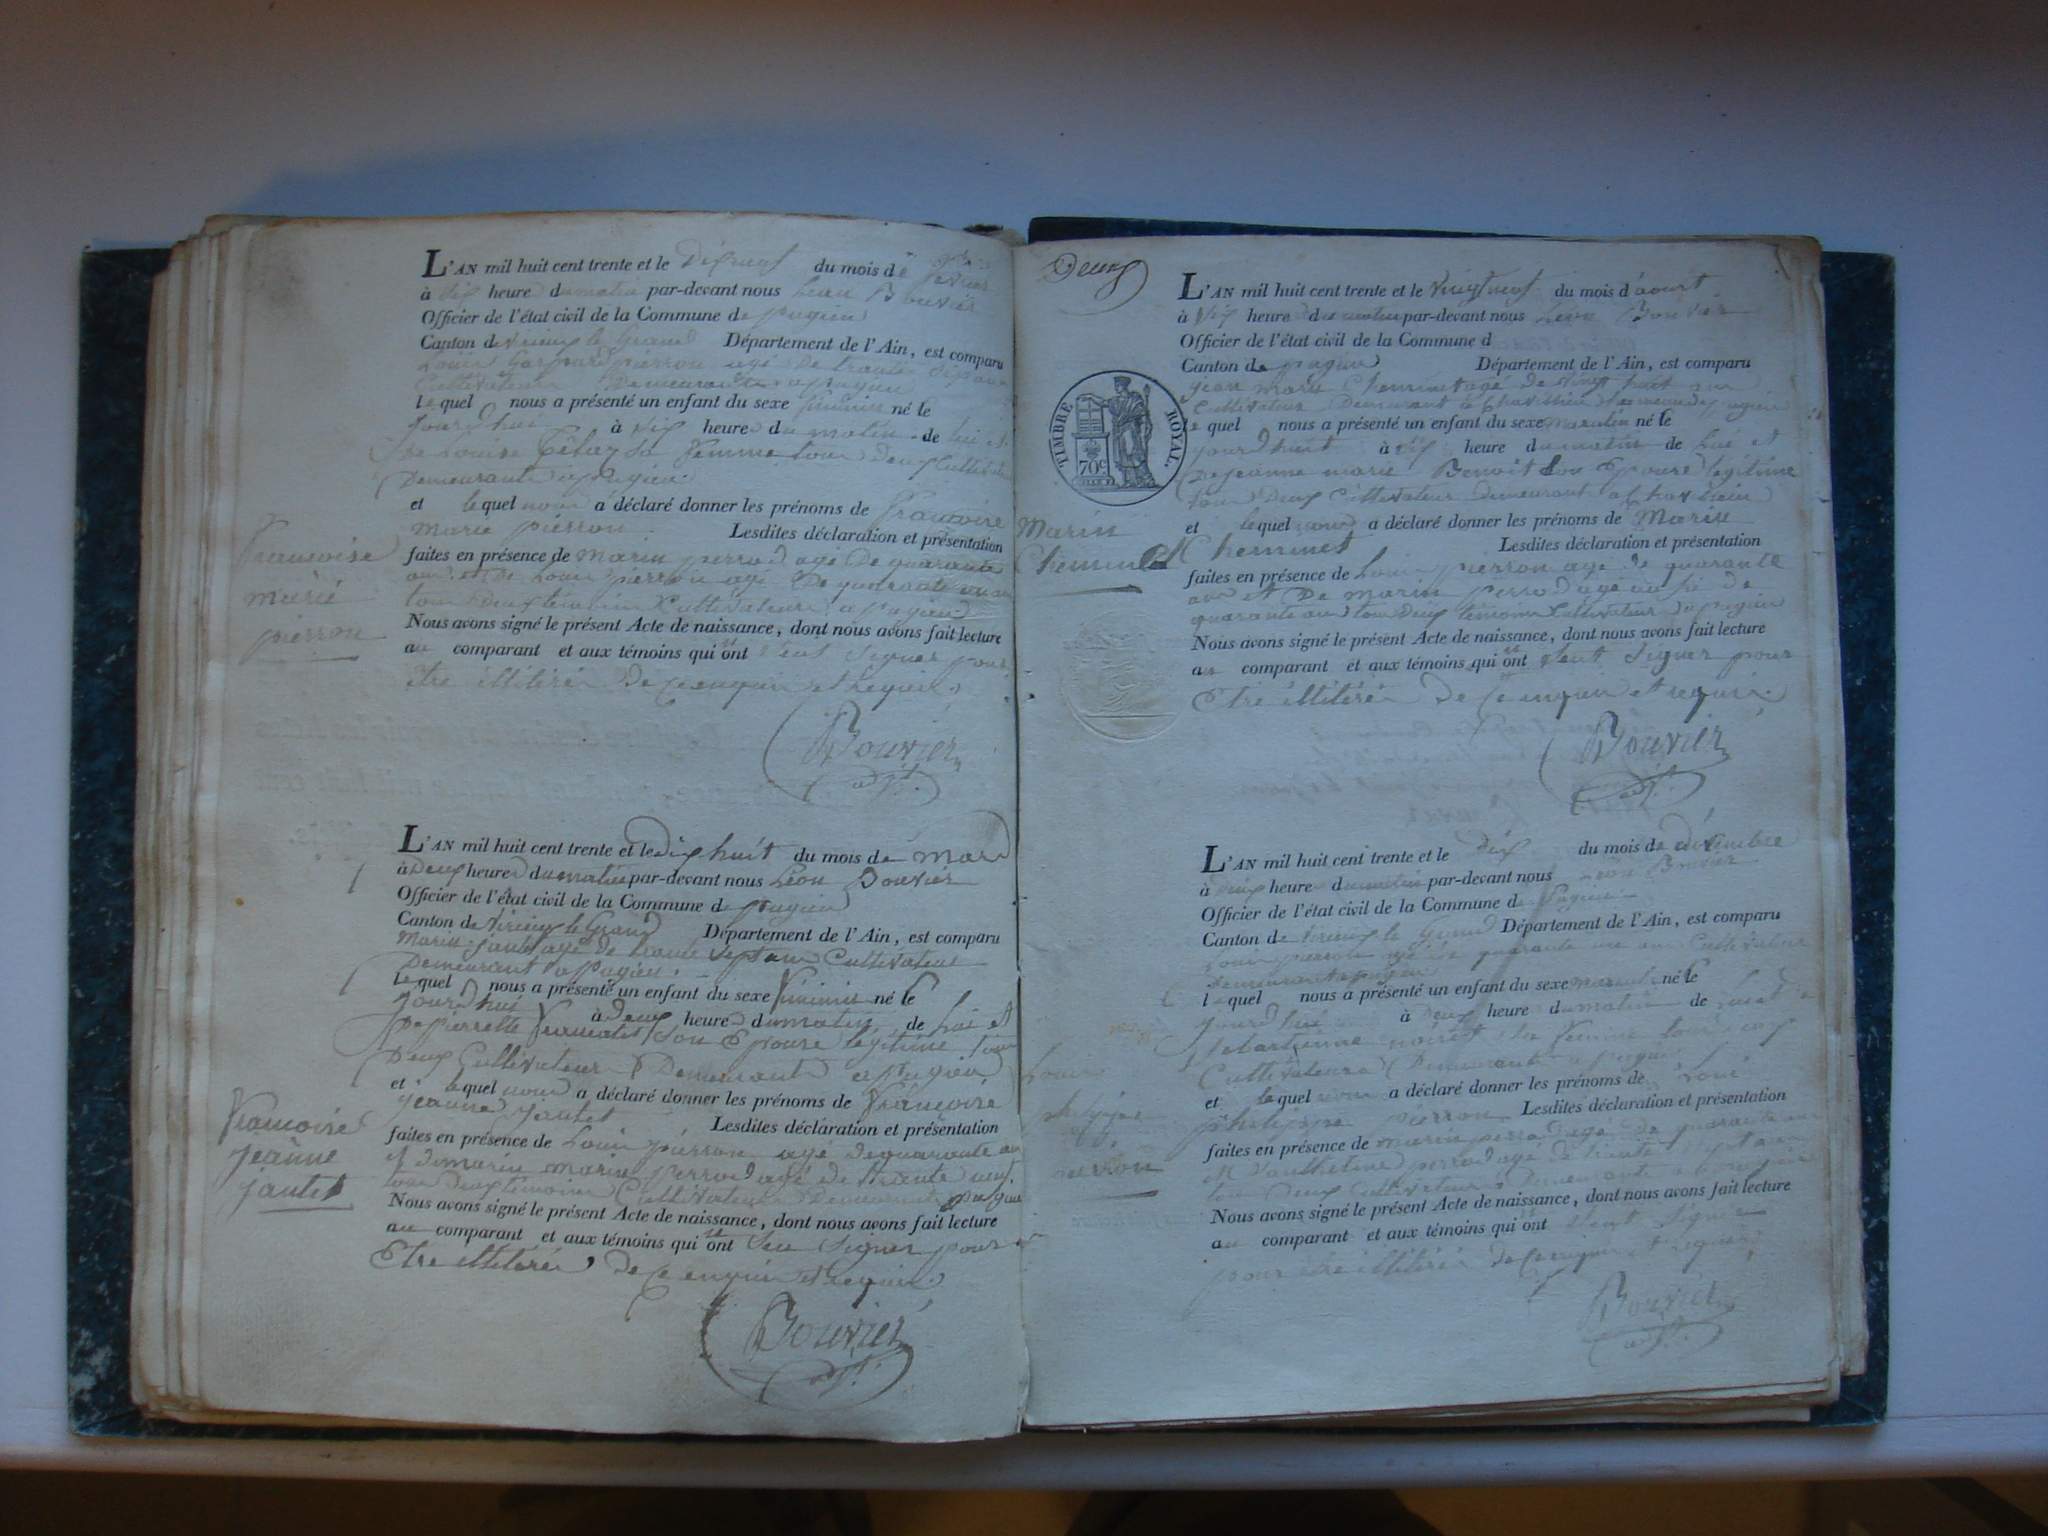 L'AN mil huit cent trente et le Dixneuf du mois de fevrier
à dix heure du matin par-devant nous Leon Bouvier
Officier de l'état civil de la Commune de pugieu
Canton de virieu le Grand Département de l'Ain, est comparu
Louis Gaspard pierron agé de trante
Cultivateur Demeurant a pugieu
lequel nous a présenté un enfant du sexe feminin né le
jourd'hui à dix heure du matin de lui et
de Louise sa femme tous deux Cultivateur
Demeurant a pugieu
et lequel nous a déclaré donner les prénoms de francoise
marie pierron Lesdites déclaration et présentation
faites en présence de marin perrod agé De quarante
ans et De Louis pierron agé De quarante un an
tous Deux témoins Cultivateurs a pugieu
Nous avons signé le présent Acte de naissance, dont nous avons fait lecture
au comparant et aux témoins qui n'ont seut signer pour
être illitérés De Ce enquis et requis.
Bouvier
adjt.
francoise
marie
pierron
L'AN mil huit cent trente et le dix huit du mois de mars
à Deux heures du matin par-devant nous Léon Bouvier
Officier de l'état civil de la Commune de pugieu
Canton de virieux le Grand Département de l'Ain, est comparu
Marin jantet agé de trante sept ans Cultivateur
Demeurant a pugieu
lequel nous a présenté un enfant du sexe féminin né le
jourd'hui à deux heures du matin de lui et
De pierrette son Epouse legitime tous
Deux Cultivateurs Demeurant a pugieu
et lequel nous a déclaré donner les prénoms de françoise
jeanne jantet Lesdites déclaration et présentation
faites en présence de Louis pierron agé de quarante an
et de marin perrod agé de trante neuf
tous deux témoins Cultivateurs Demeurant a pugieu
Nous avons signé le présent Acte de naissance, dont nous avons fait lecture
au comparant et aux témoins qui n'ont seu signer pour
Etre illitérés, de Ce enquis et requis.
Bouvier
adjt.
francoise
jeanne
jantet
Deux
TIMBRE ROYAL.
70c
L'AN mil huit cent trente et le vingt neuf du mois d'aoust
à dix heure du matin par-devant nous Léon Bouvier
Officier de l'état civil de la Commune d
Canton de pugieu Département de l'Ain, est comparu
jean marie Cheminet agé de vingt huit ans
Cultivateur Demeurant a hameau de pugieu
lequel nous a présenté un enfant du sexe masculin né le
jourd'huit à dix heure du matin de lui et
De jeanne marie Benoit son Epouse legitime
tous Deux Cultivateur demeurant a
et lequel nous a déclaré donner les prénoms de Marin
Cheminet Lesdites déclaration et présentation
faites en présence de Louis pierron agé de quarante
ans et De marin perrod agé aussi de
quarante ans tous Deux témoins Cultivateurs a pugieu
Nous avons signé le présent Acte de naissance, dont nous avons fait lecture
au comparant et aux témoins qui n'ont seut signer pour
Etre illitérés de Ce enquis et requis.
Bouvier
adjt.
Marin
Cheminet
L'AN mil huit cent trente et le dix du mois de décembre
à deux heure du matin par-devant nous Léon Bouvier
Officier de l'état civil de la Commune de Pugieu
Canton de virieux le Grand Département de l'Ain, est comparu
Louis pierron agé de quarante un an Cultivateur
demeurant a pugieu
lequel nous a présenté un enfant du sexe masculin né le
jourd'hui à deux heure du matin de lui et
sa femme tous deux
Cultivateurs Demeurant a pugieu
et lequel nous a déclaré donner les prénoms de Louis
philippe pierron Lesdites déclaration et présentation
faites en présence de marin perrod agé de quarante ans
et perrod agé de trante sept ans
tous deux Cultivateurs Demeurant a pugieu
Nous avons signé le présent Acte de naissance, dont nous avons fait lecture
au comparant et aux témoins qui n'ont seut signer
pour être illitérés de Ce enquis et requis
Bouvier
adjt.
Louis
philippe
pierron